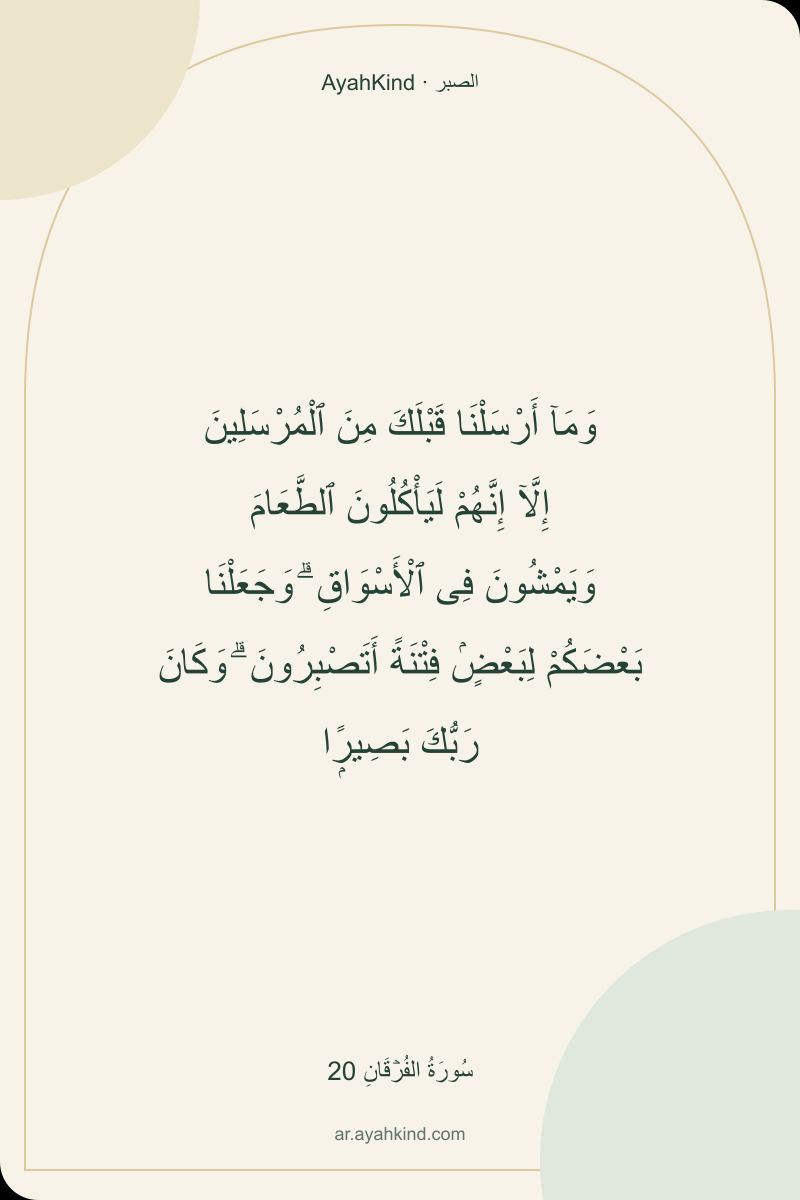 AyahKind · الصبر
وَمَآ أَرْسَلْنَا قَبْلَكَ مِنَ ٱلْمُرْسَلِينَ
إِلَّآ إِنَّهُمْ لَيَأْكُلُونَ ٱلطَّعَامَ
وَيَمْشُونَ فِى ٱلْأَسْوَاقِ ۗ وَجَعَلْنَا
بَعْضَكُمْ لِبَعْضٍۢ فِتْنَةً أَتَصْبِرُونَ ۗ وَكَانَ
رَبُّكَ بَصِيرًۭا
سُورَةُ الفُرۡقَانِ 20
ar.ayahkind.com